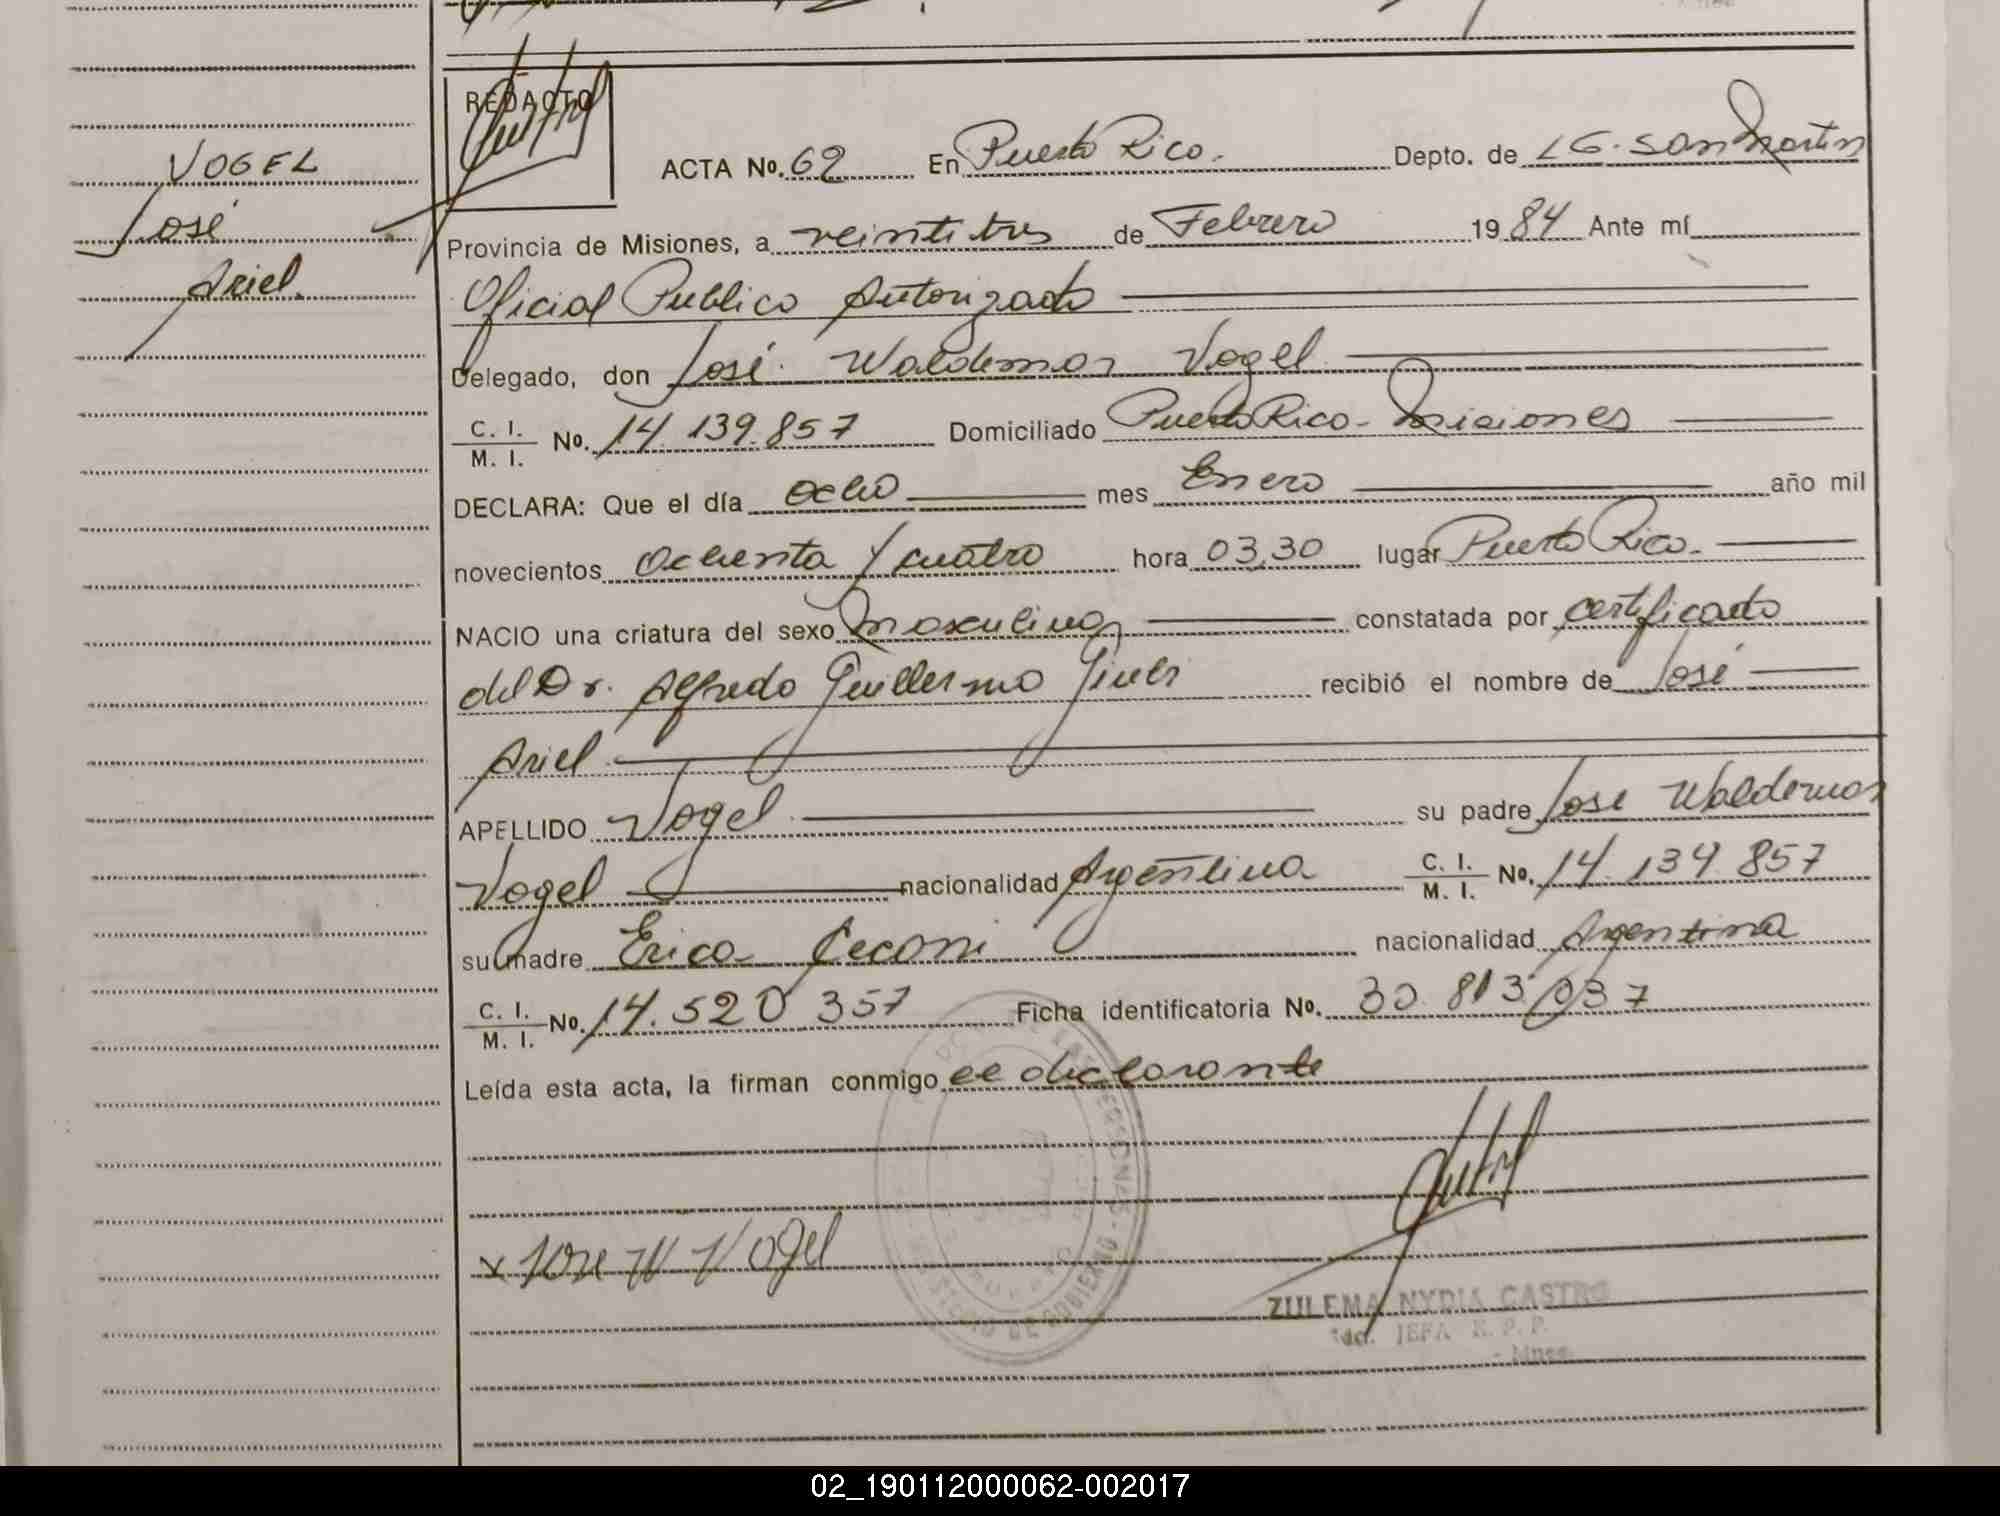 REDACTO
VOGEL
José
Ariel.
ACTA No. 62 En Puerto Rico. Depto. de LG. San Martin
Provincia de Misiones, a veintitres de Febrero 19 84 Ante mí
Oficial Publico Autorizado
Delegado, don José Waldemar Vogel
C. I.
M. I. No. 14.139.857 Domiciliado Puerto Rico - Misiones
DECLARA: Que el día ocho mes Enero año mil
novecientos ochenta y cuatro hora 03,30 lugar Puerto Rico.
NACIO una criatura del sexo masculino constatada por certificado
del Dr. Alfredo Guillermo recibió el nombre de José
Ariel
APELLIDO Vogel su padre José Waldemar
Vogel nacionalidad Argentina C. I.
M. I. No. 14.139.857
su madre Erica Ceconi nacionalidad Argentina
C. I.
M. I. No. 14.520.357 Ficha identificatoria No. 30.813.037
Leída esta acta, la firman conmigo el declarante
x Jose W Vogel
ZULEMA NYDIA CASTRO
JEFA R. P. P.
02_190112000062-002017